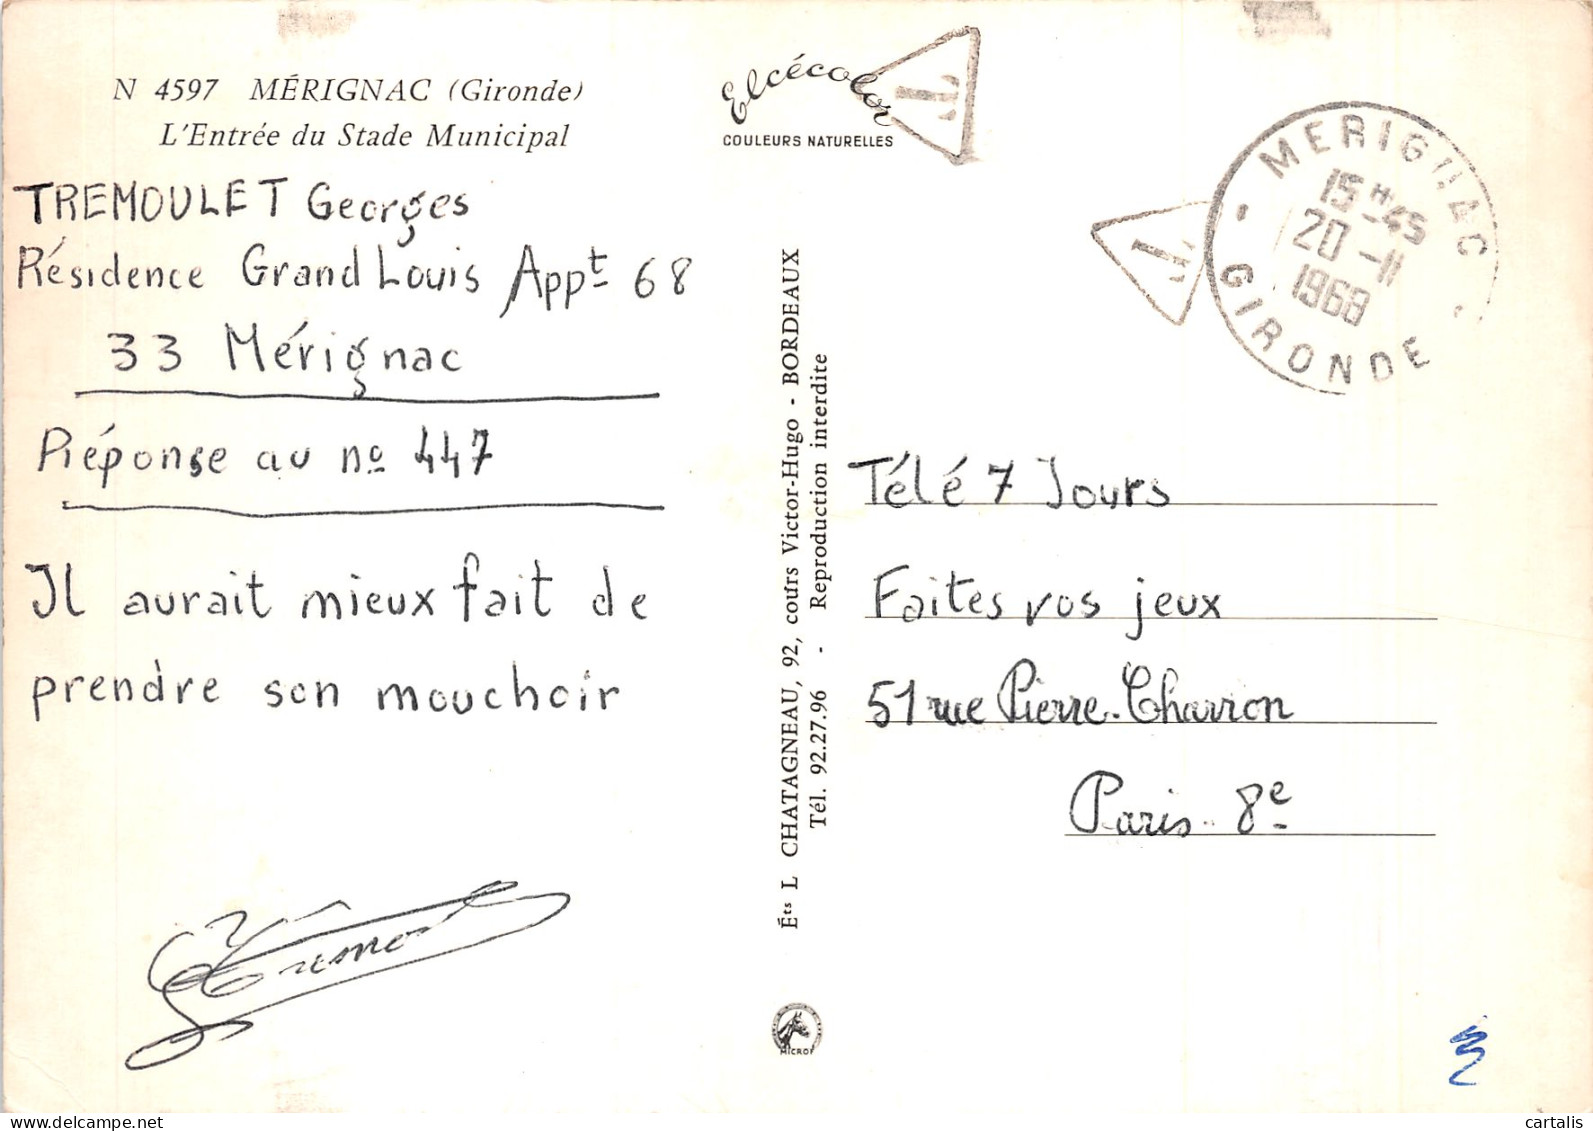 N 4597 MÉRIGNAC (Gironde)
L'Entrée du Stade Municipal
TREMOULET Georges
Résidence Grand Louis Appt 68
33 Mérignac
Réponse au no 447
Il aurait mieux fait de
prendre son mouchoir
Elcécolor
COULEURS NATURELLES
T
T
MERIGNAC
15H45
20-11
1968
GIRONDE
Éts L CHATAGNEAU, 92, cours Victor-Hugo - BORDEAUX
Tél. 92.27.96 - Reproduction interdite
Télé 7 Jours
Faites vos jeux
51 rue Pierre-Charron
Paris 8e
cartalis - delcampe.net